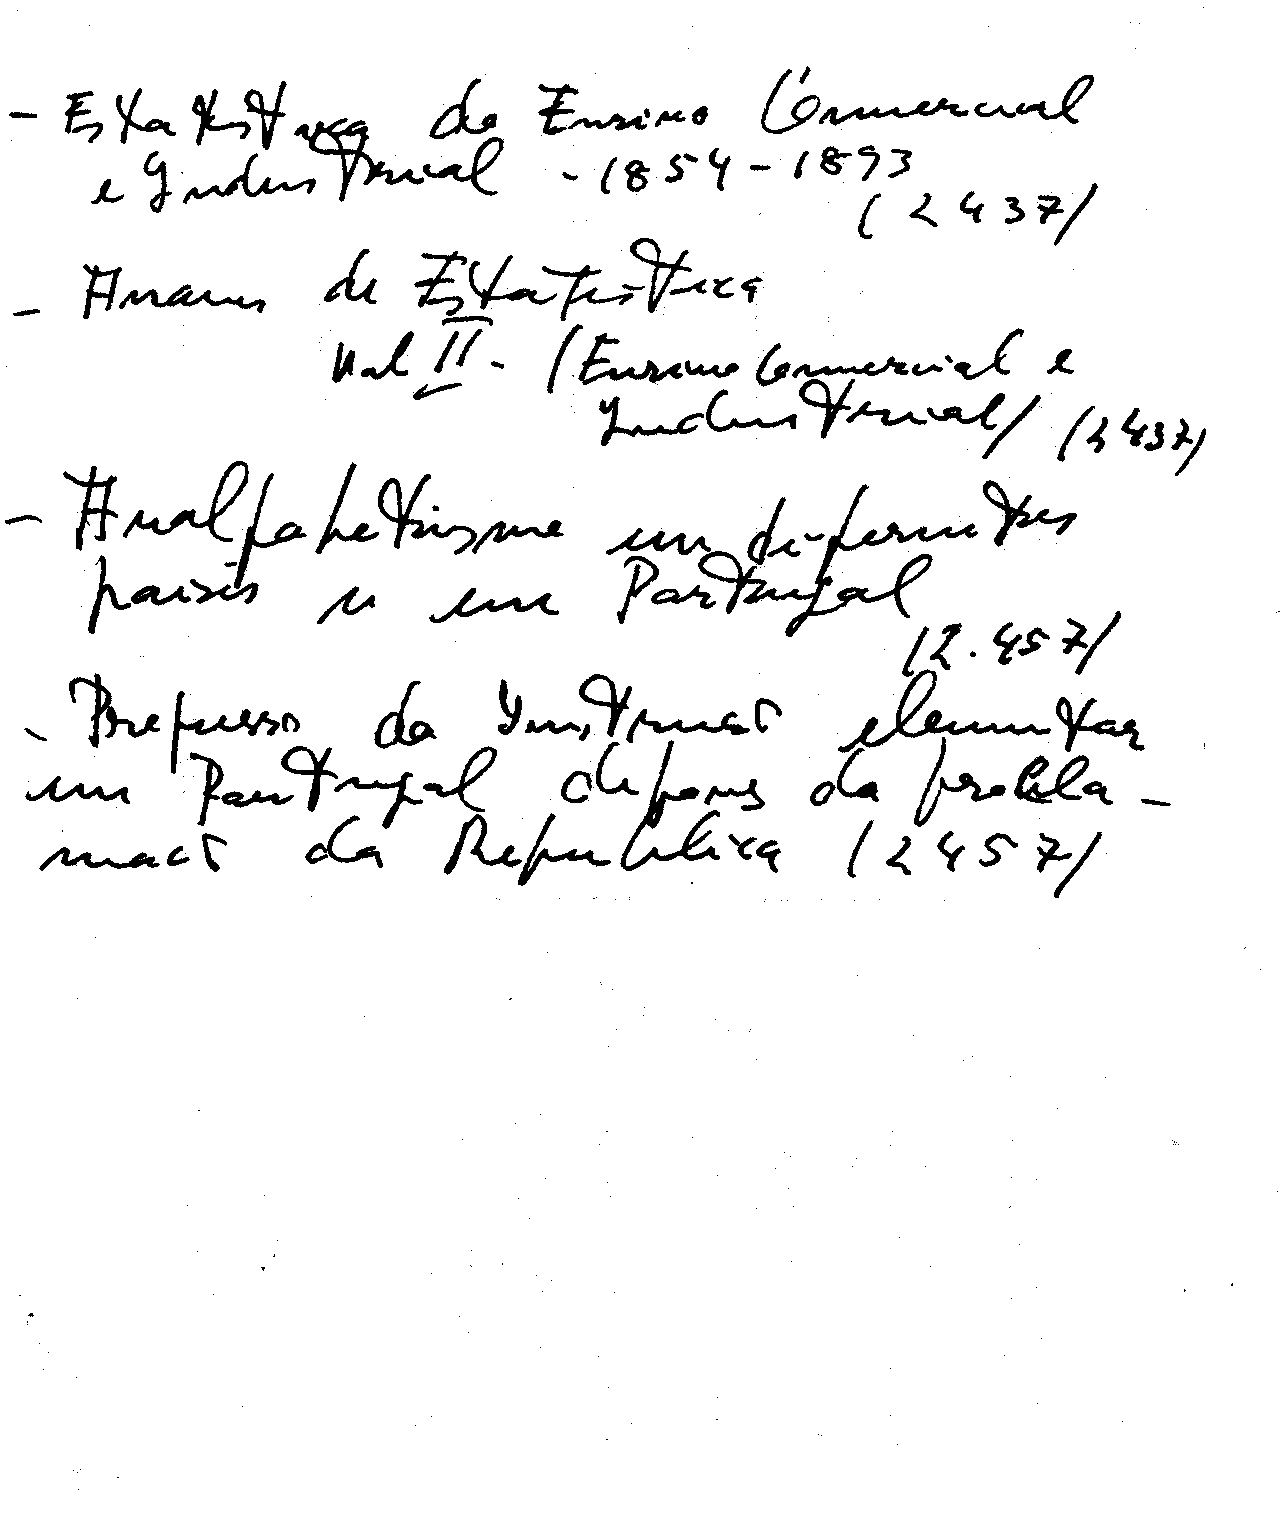 - Estatística do Ensino Comercial
e Industrial - 1854-1893
(2437)
- Anais de Estatística
Vol II - (Ensino Comercial e
Industrial) (2437)
- Analfabetismo em diferentes
países e em Portugal
(2.457)
- Progresso da Instrução elementar
em Portugal depois da procla-
mação da República (2457)